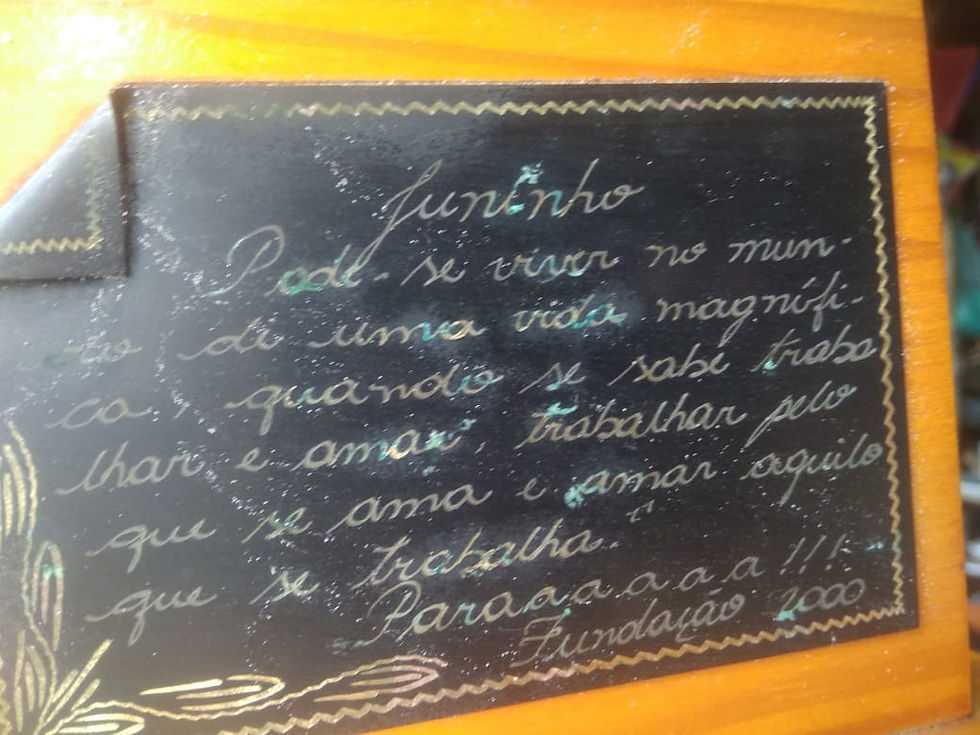 Juninho
Pode-se viver no mun-
do de uma vida magnífi-
ca, quando se sabe traba
lhar e amar, trabalhar pelo
que se ama e amar aquilo
que se trabalha."
Paraaaaaa!!!
Fundação 2000